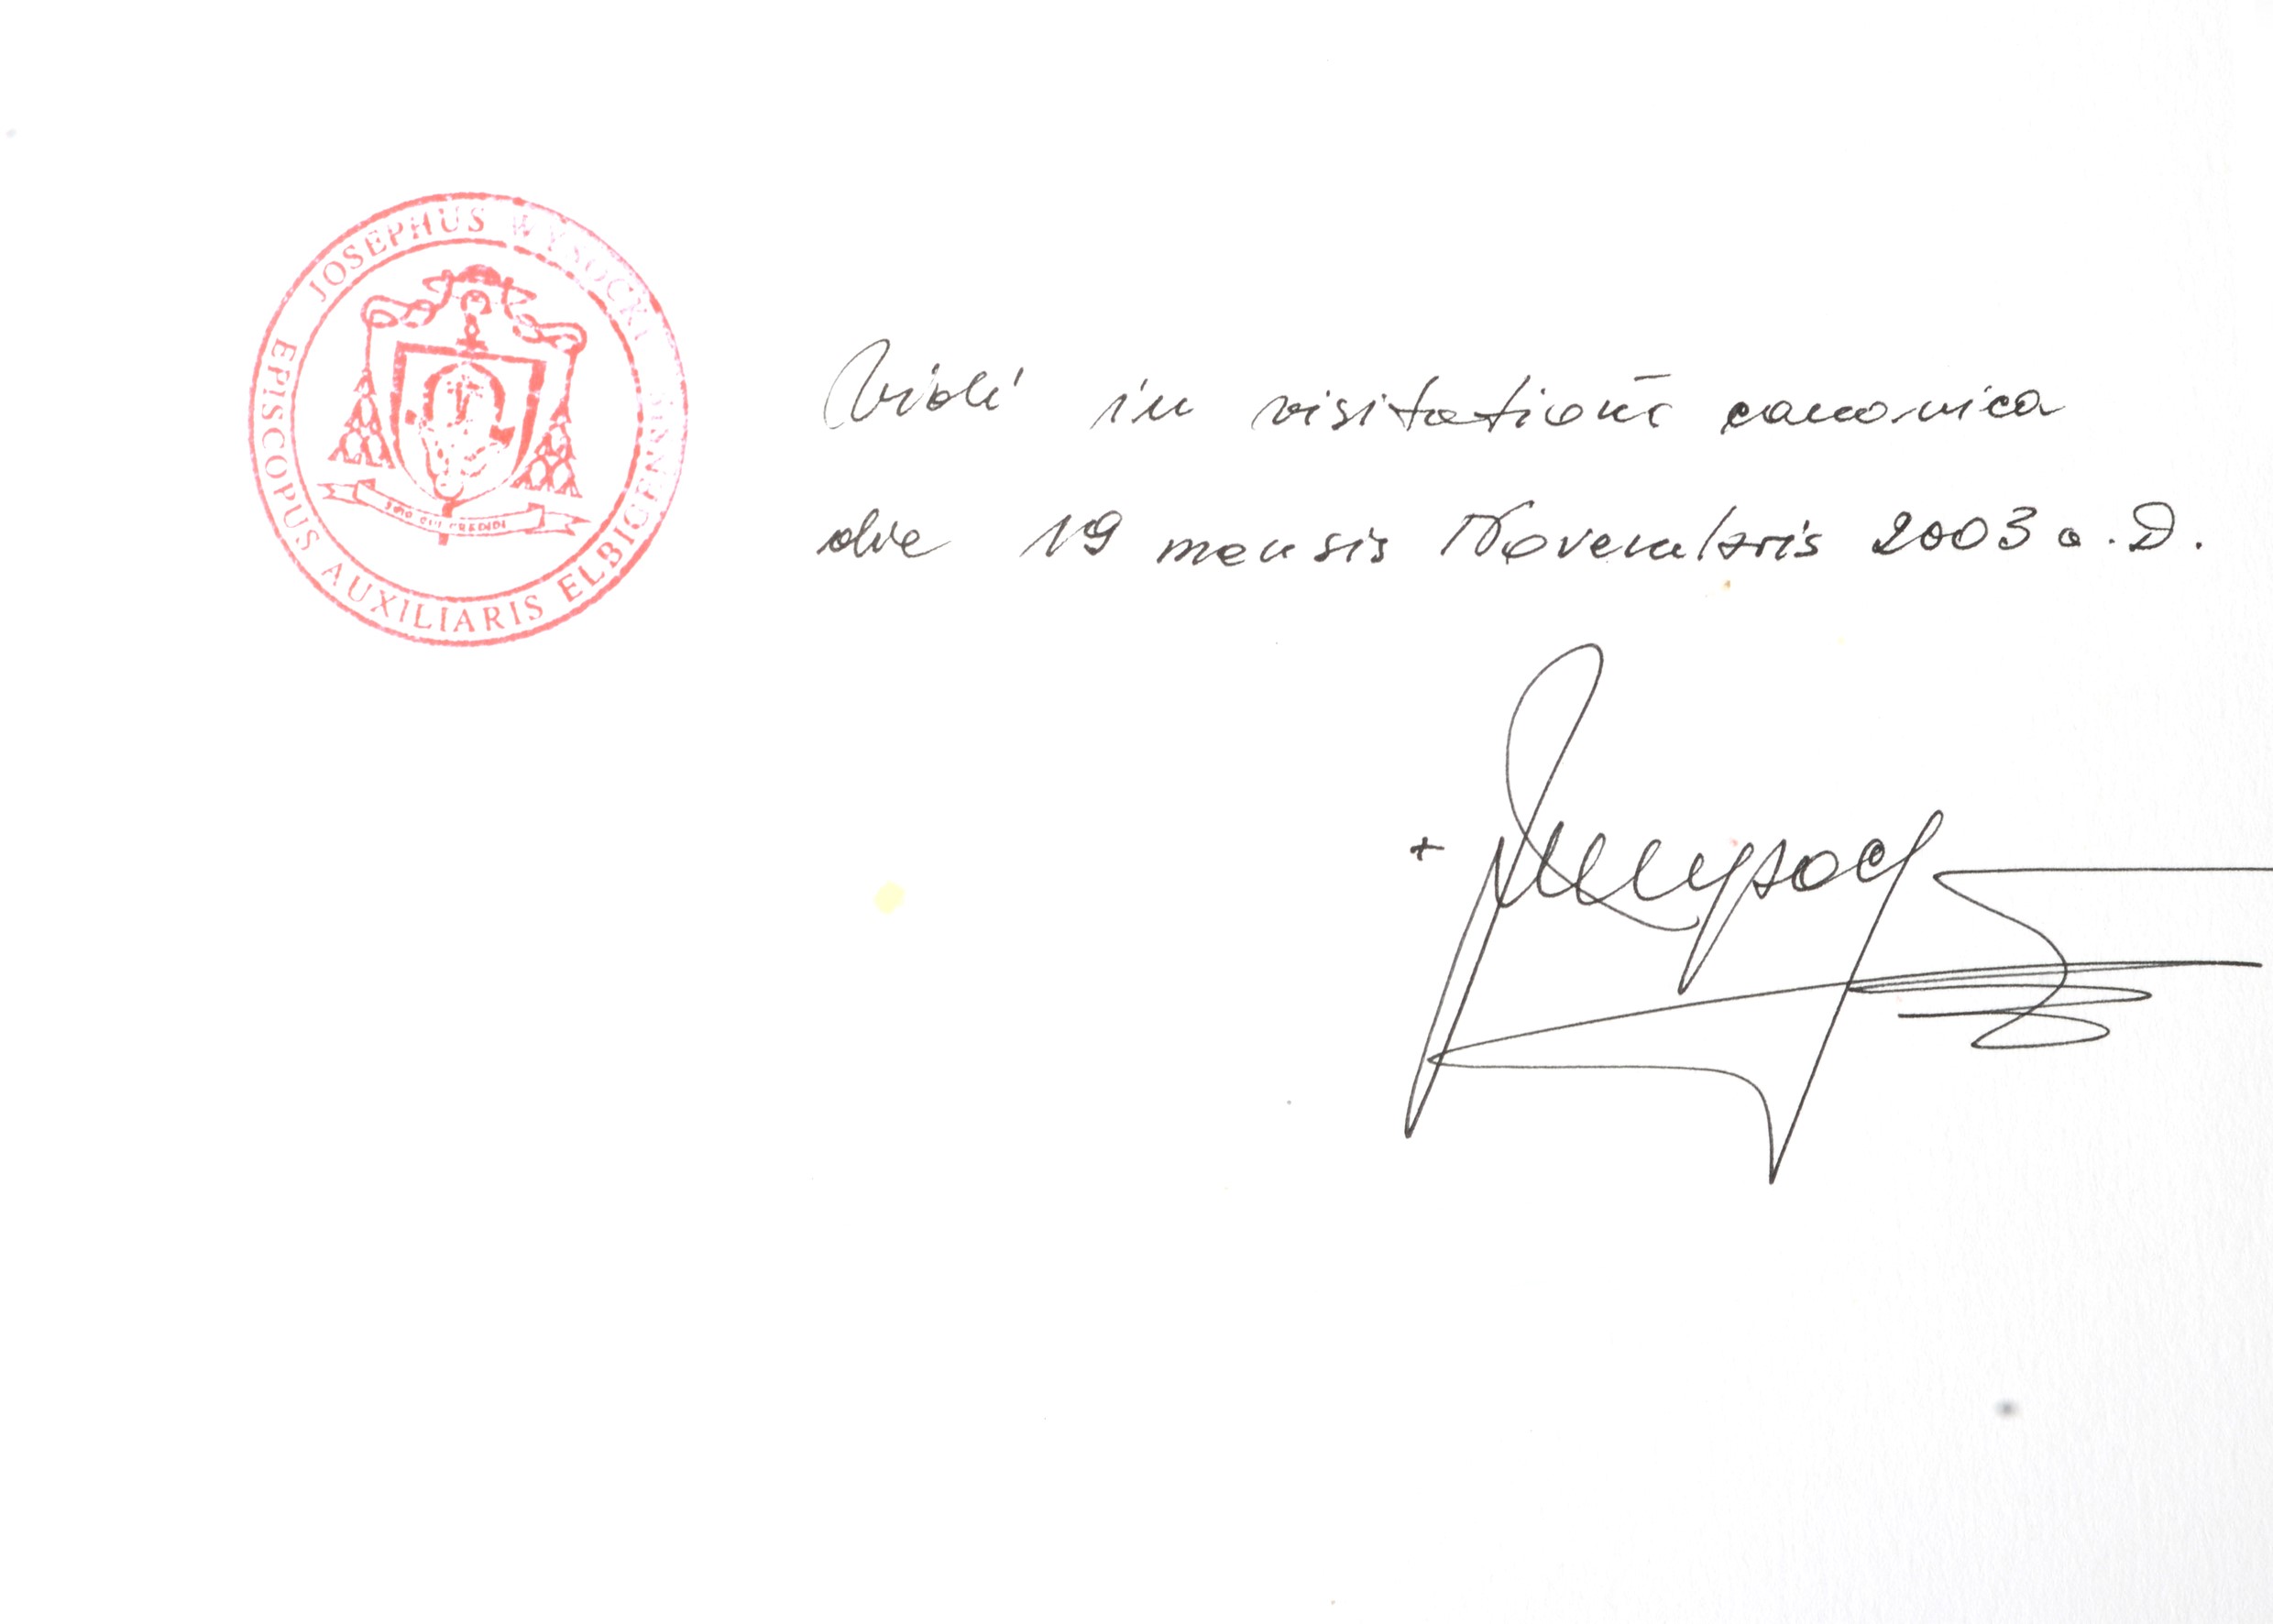 JOSEPHUS WYSOCKI
EPISCOPUS AUXILIARIS ELBIGENSIS
SCIO CUI CREDIDI
Vidi in visitationi canonica
die 19 mensis Novembris 2003 a. D.
+